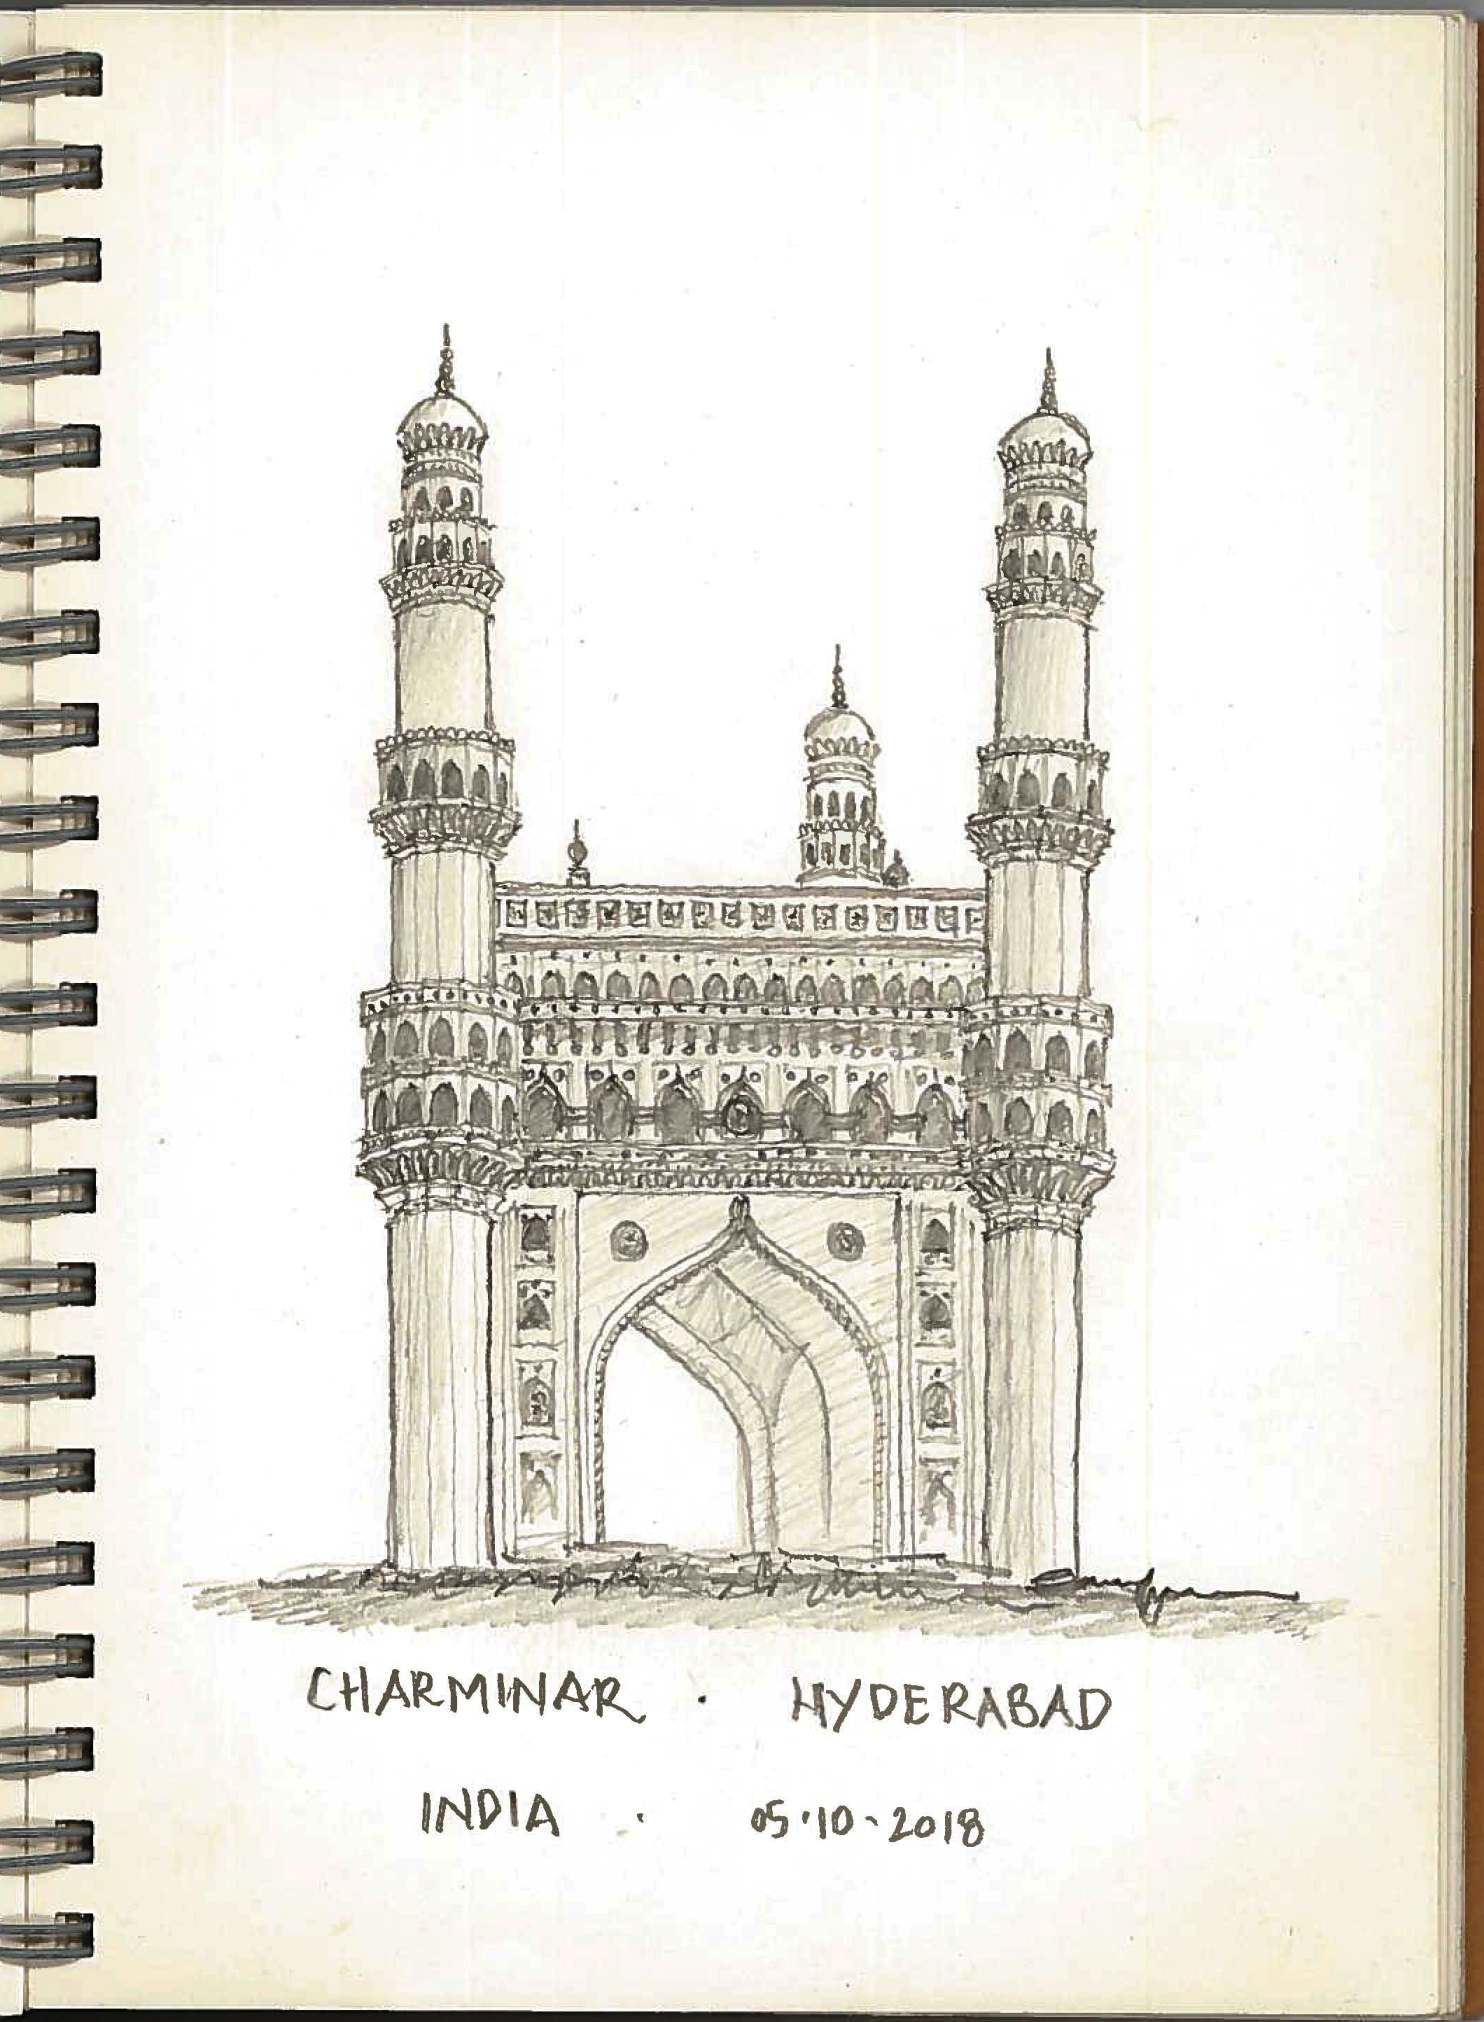 CHARMINAR . HYDERABAD
INDIA . 05.10.2018